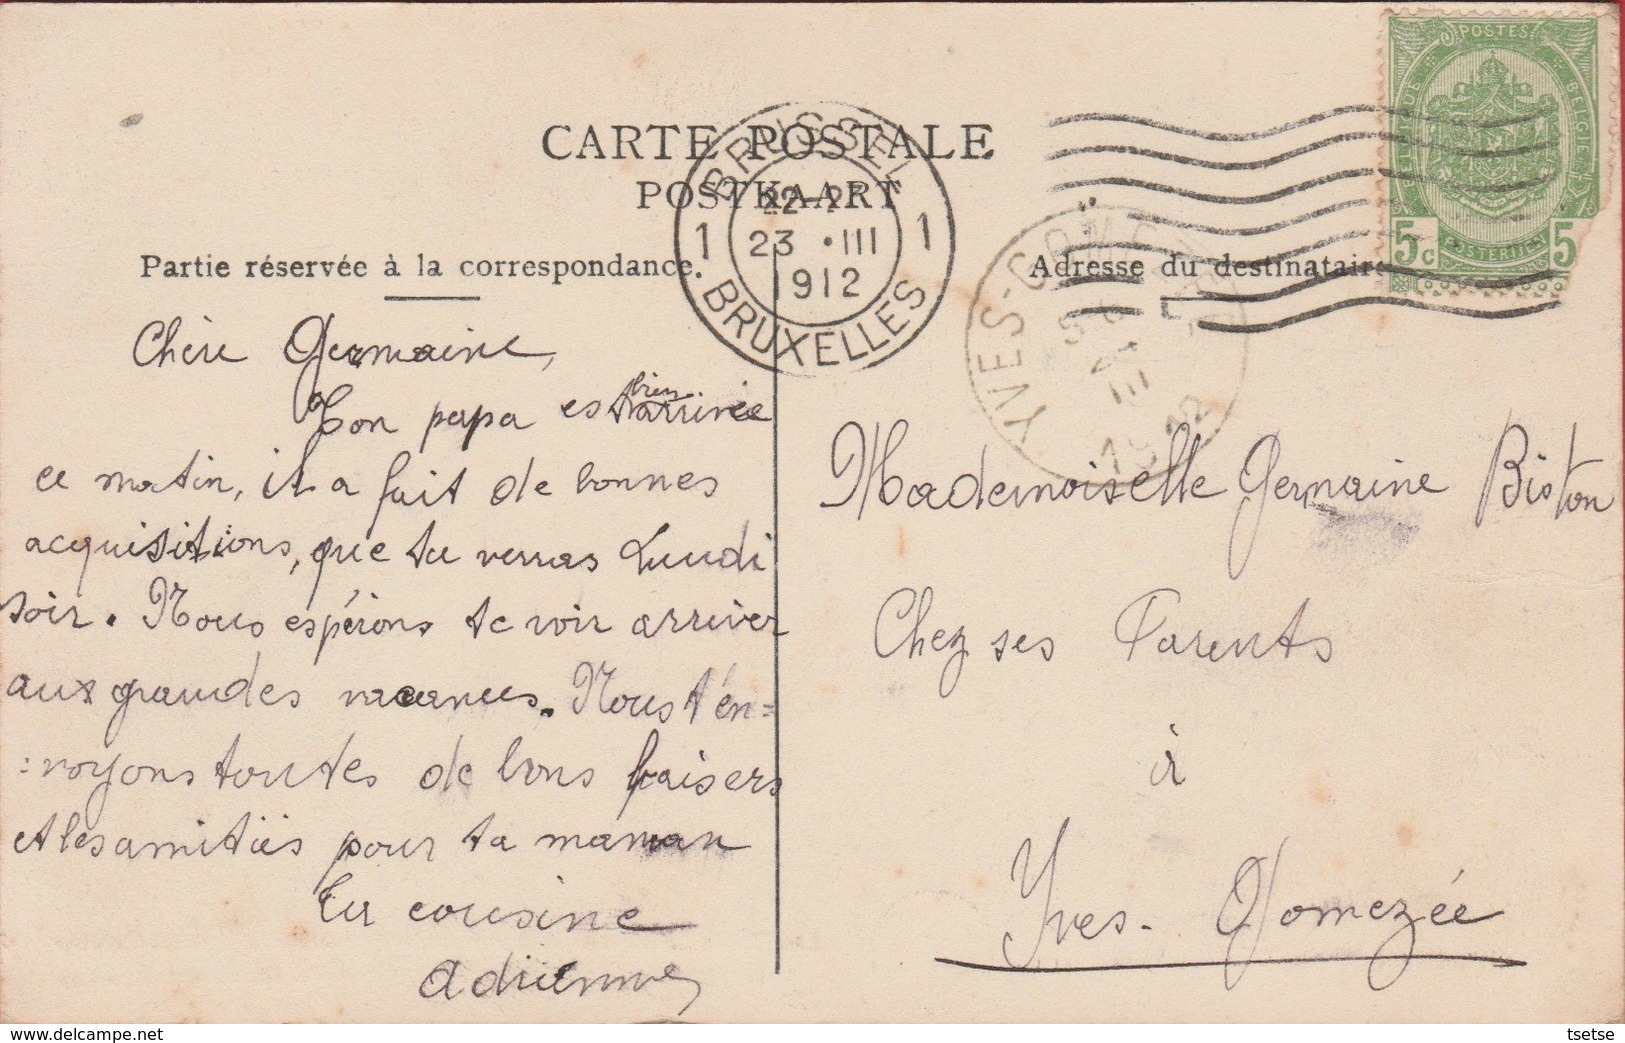 CARTE POSTALE
POSTKAART
Partie réservée à la correspondance.
Adresse du destinataire
BRUSSEL
22-2
1 23 · III 1
1912
BRUXELLES
YVES-GOMEZEE
III
1912
POSTES
BELGIQUE
BELGIE
POSTERIJEN
5c 5
Chère Germaine,
Ton papa est bien arrivée
ce matin, il a fait de bonnes
acquisitions, que tu verras Lundi
soir. Nous espérions te voir arriver
aux grandes vacances. Nous t'en=
=voyons toutes de bons baisers
et les amitiés pour ta maman
Ta cousine
Adrienne
Mademoiselle Germaine Biston
Chez ses Parents
à
Yves-Gomezée
tsetse
delcampe.net